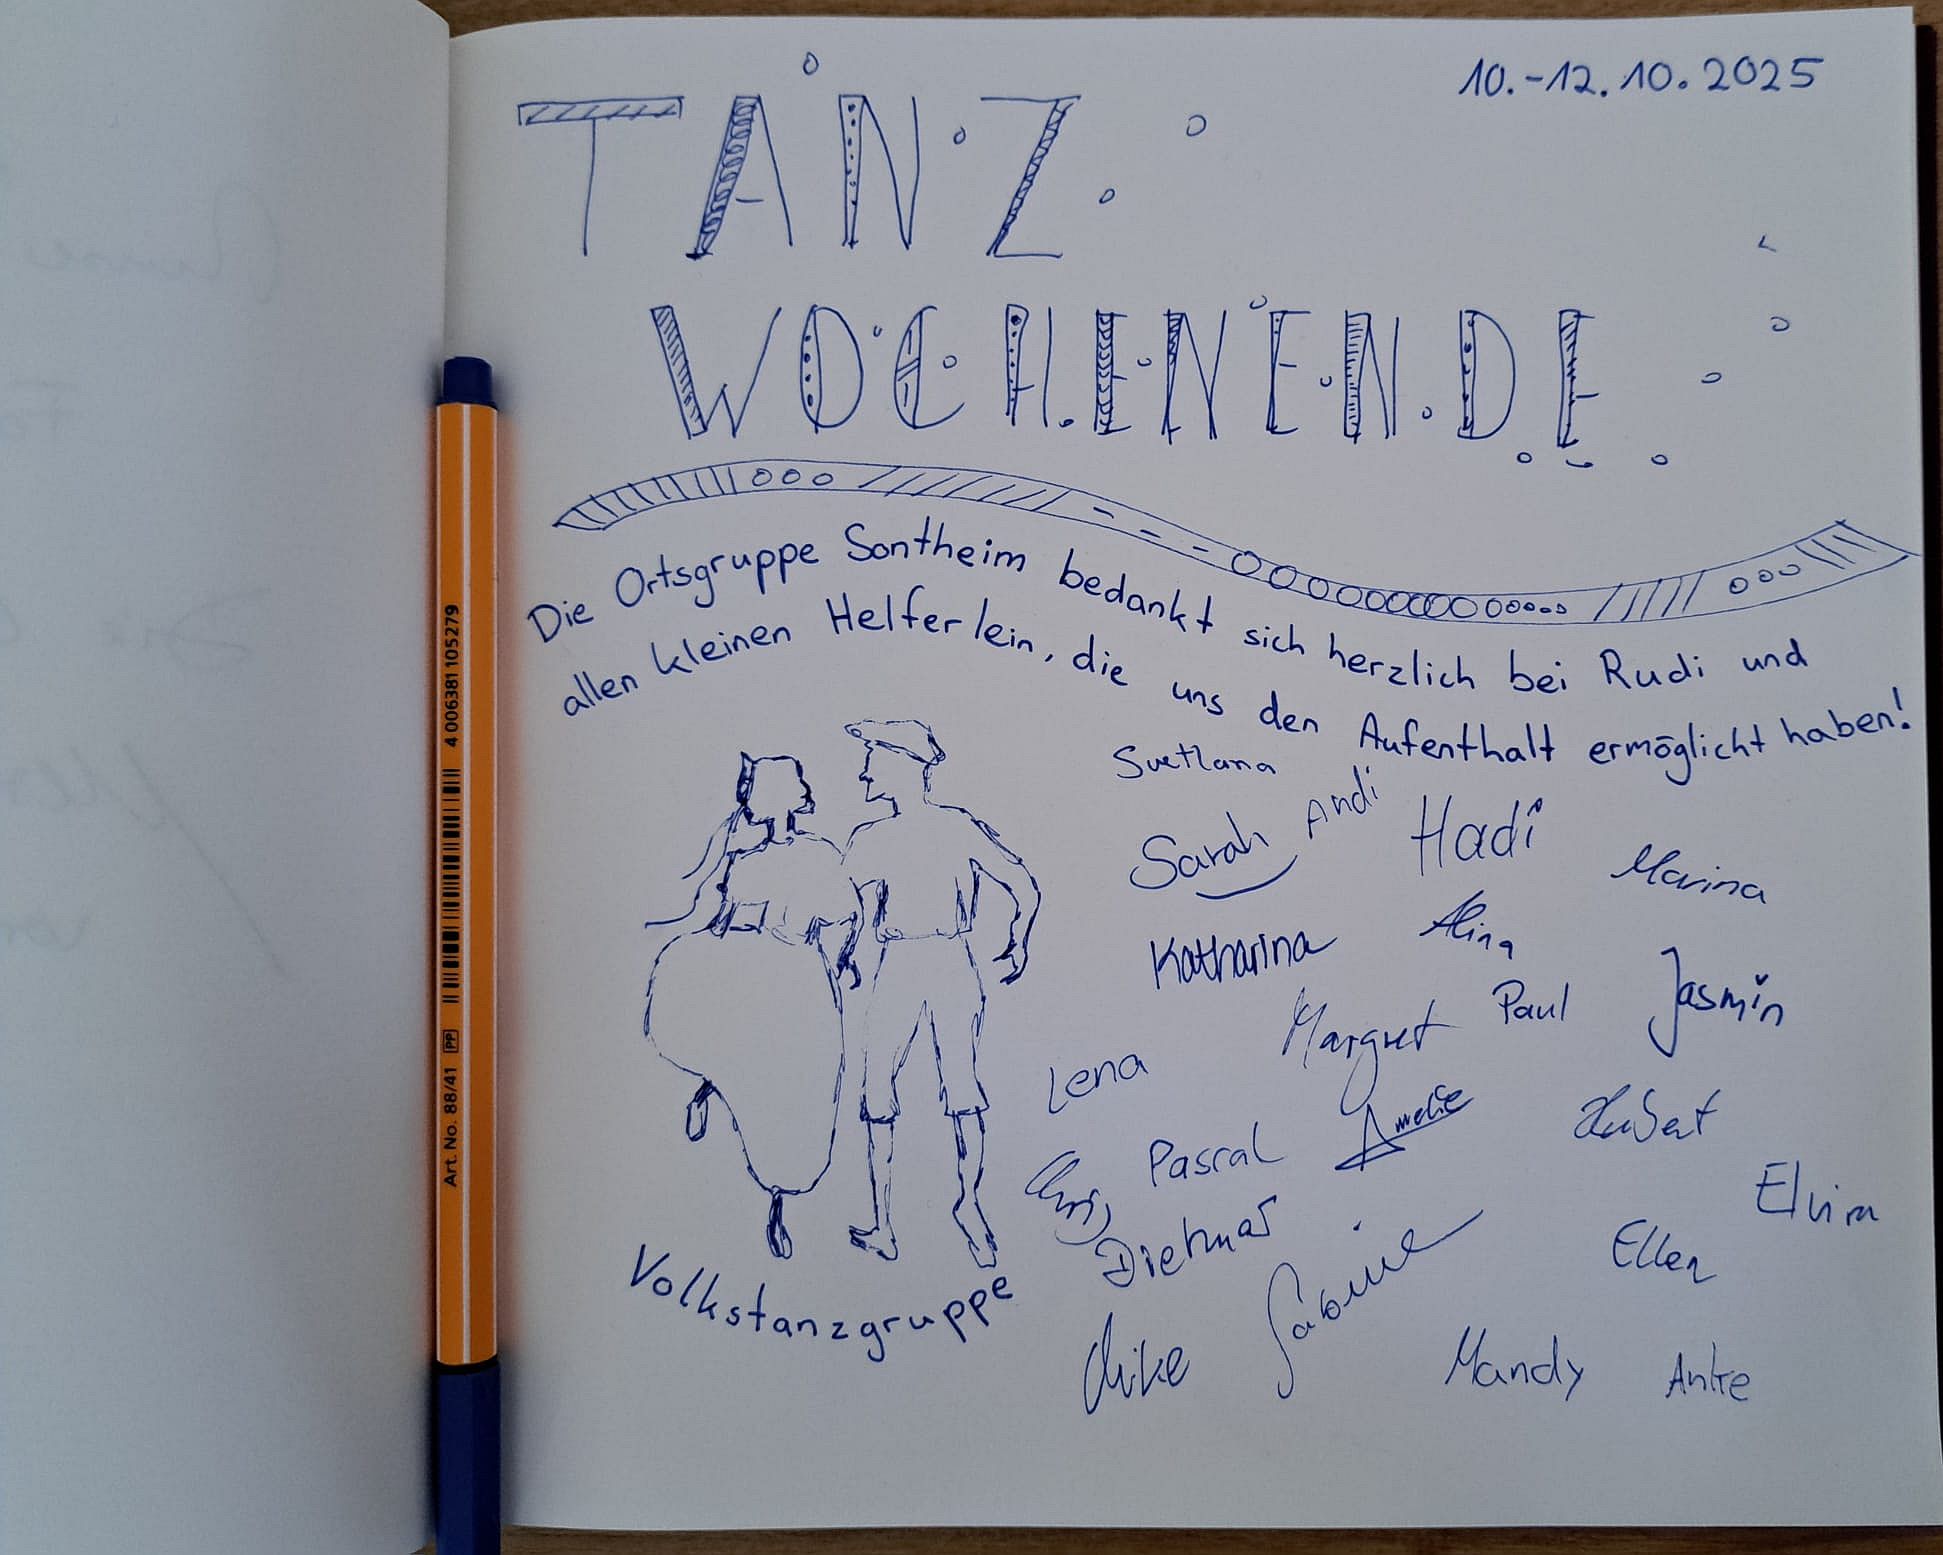 10.-12.10.2025
TANZ
WOCHENENDE
Die Ortsgruppe Sontheim bedankt sich herzlich bei Rudi und
allen kleinen Helferlein, die uns den Aufenthalt ermöglicht haben!
Svetlana
Andi
Sarah
Hadi
Marina
Katharina
Alina
Margret
Paul
Jasmin
Lena
Pascal
Amelie
Hubert
Elvira
Dietmar
Sabine
Ellen
Volkstanzgruppe
Mike
Mandy
Anke
Art. No. 88/41 PP 4 006381 105279